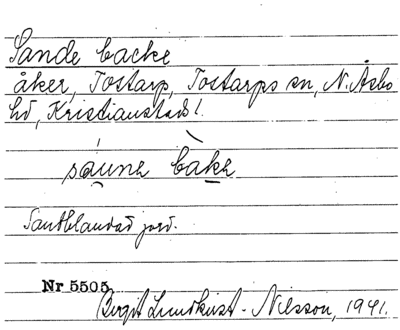 Sande backe
åker, Tostarp, Tostarps sn, N. Åsbo
hd, Kristianstads l.
sáunə bàkə
Sandblandad jord.
Nr 5505
Birgit Lundkvist-Nilsson, 1941.